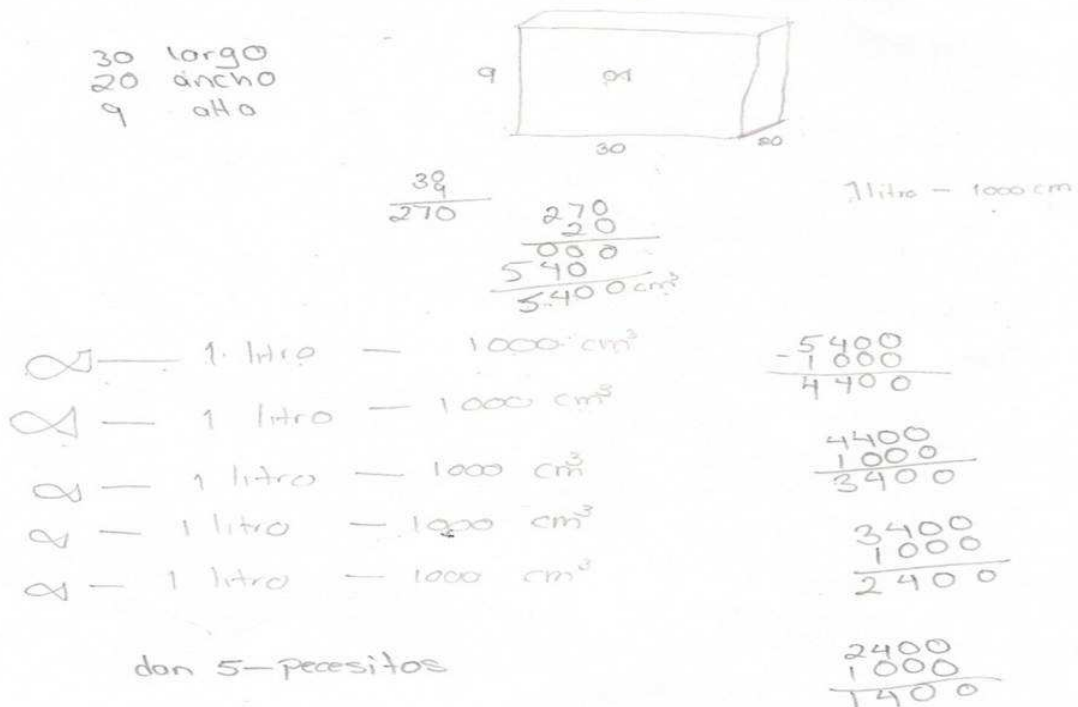 30 largo
20 ancho
9 alto
9
30
20
30
9
270
270
20
000
540
5400 cm³
1 litro - 1000 cm
1 litro - 1000 cm³
1 litro - 1000 cm³
1 litro - 1000 cm³
1 litro - 1000 cm³
1 litro - 1000 cm³
dan 5-pecesitos
5400
- 1000
4400
4400
1000
3400
3400
1000
2400
2400
1000
1400